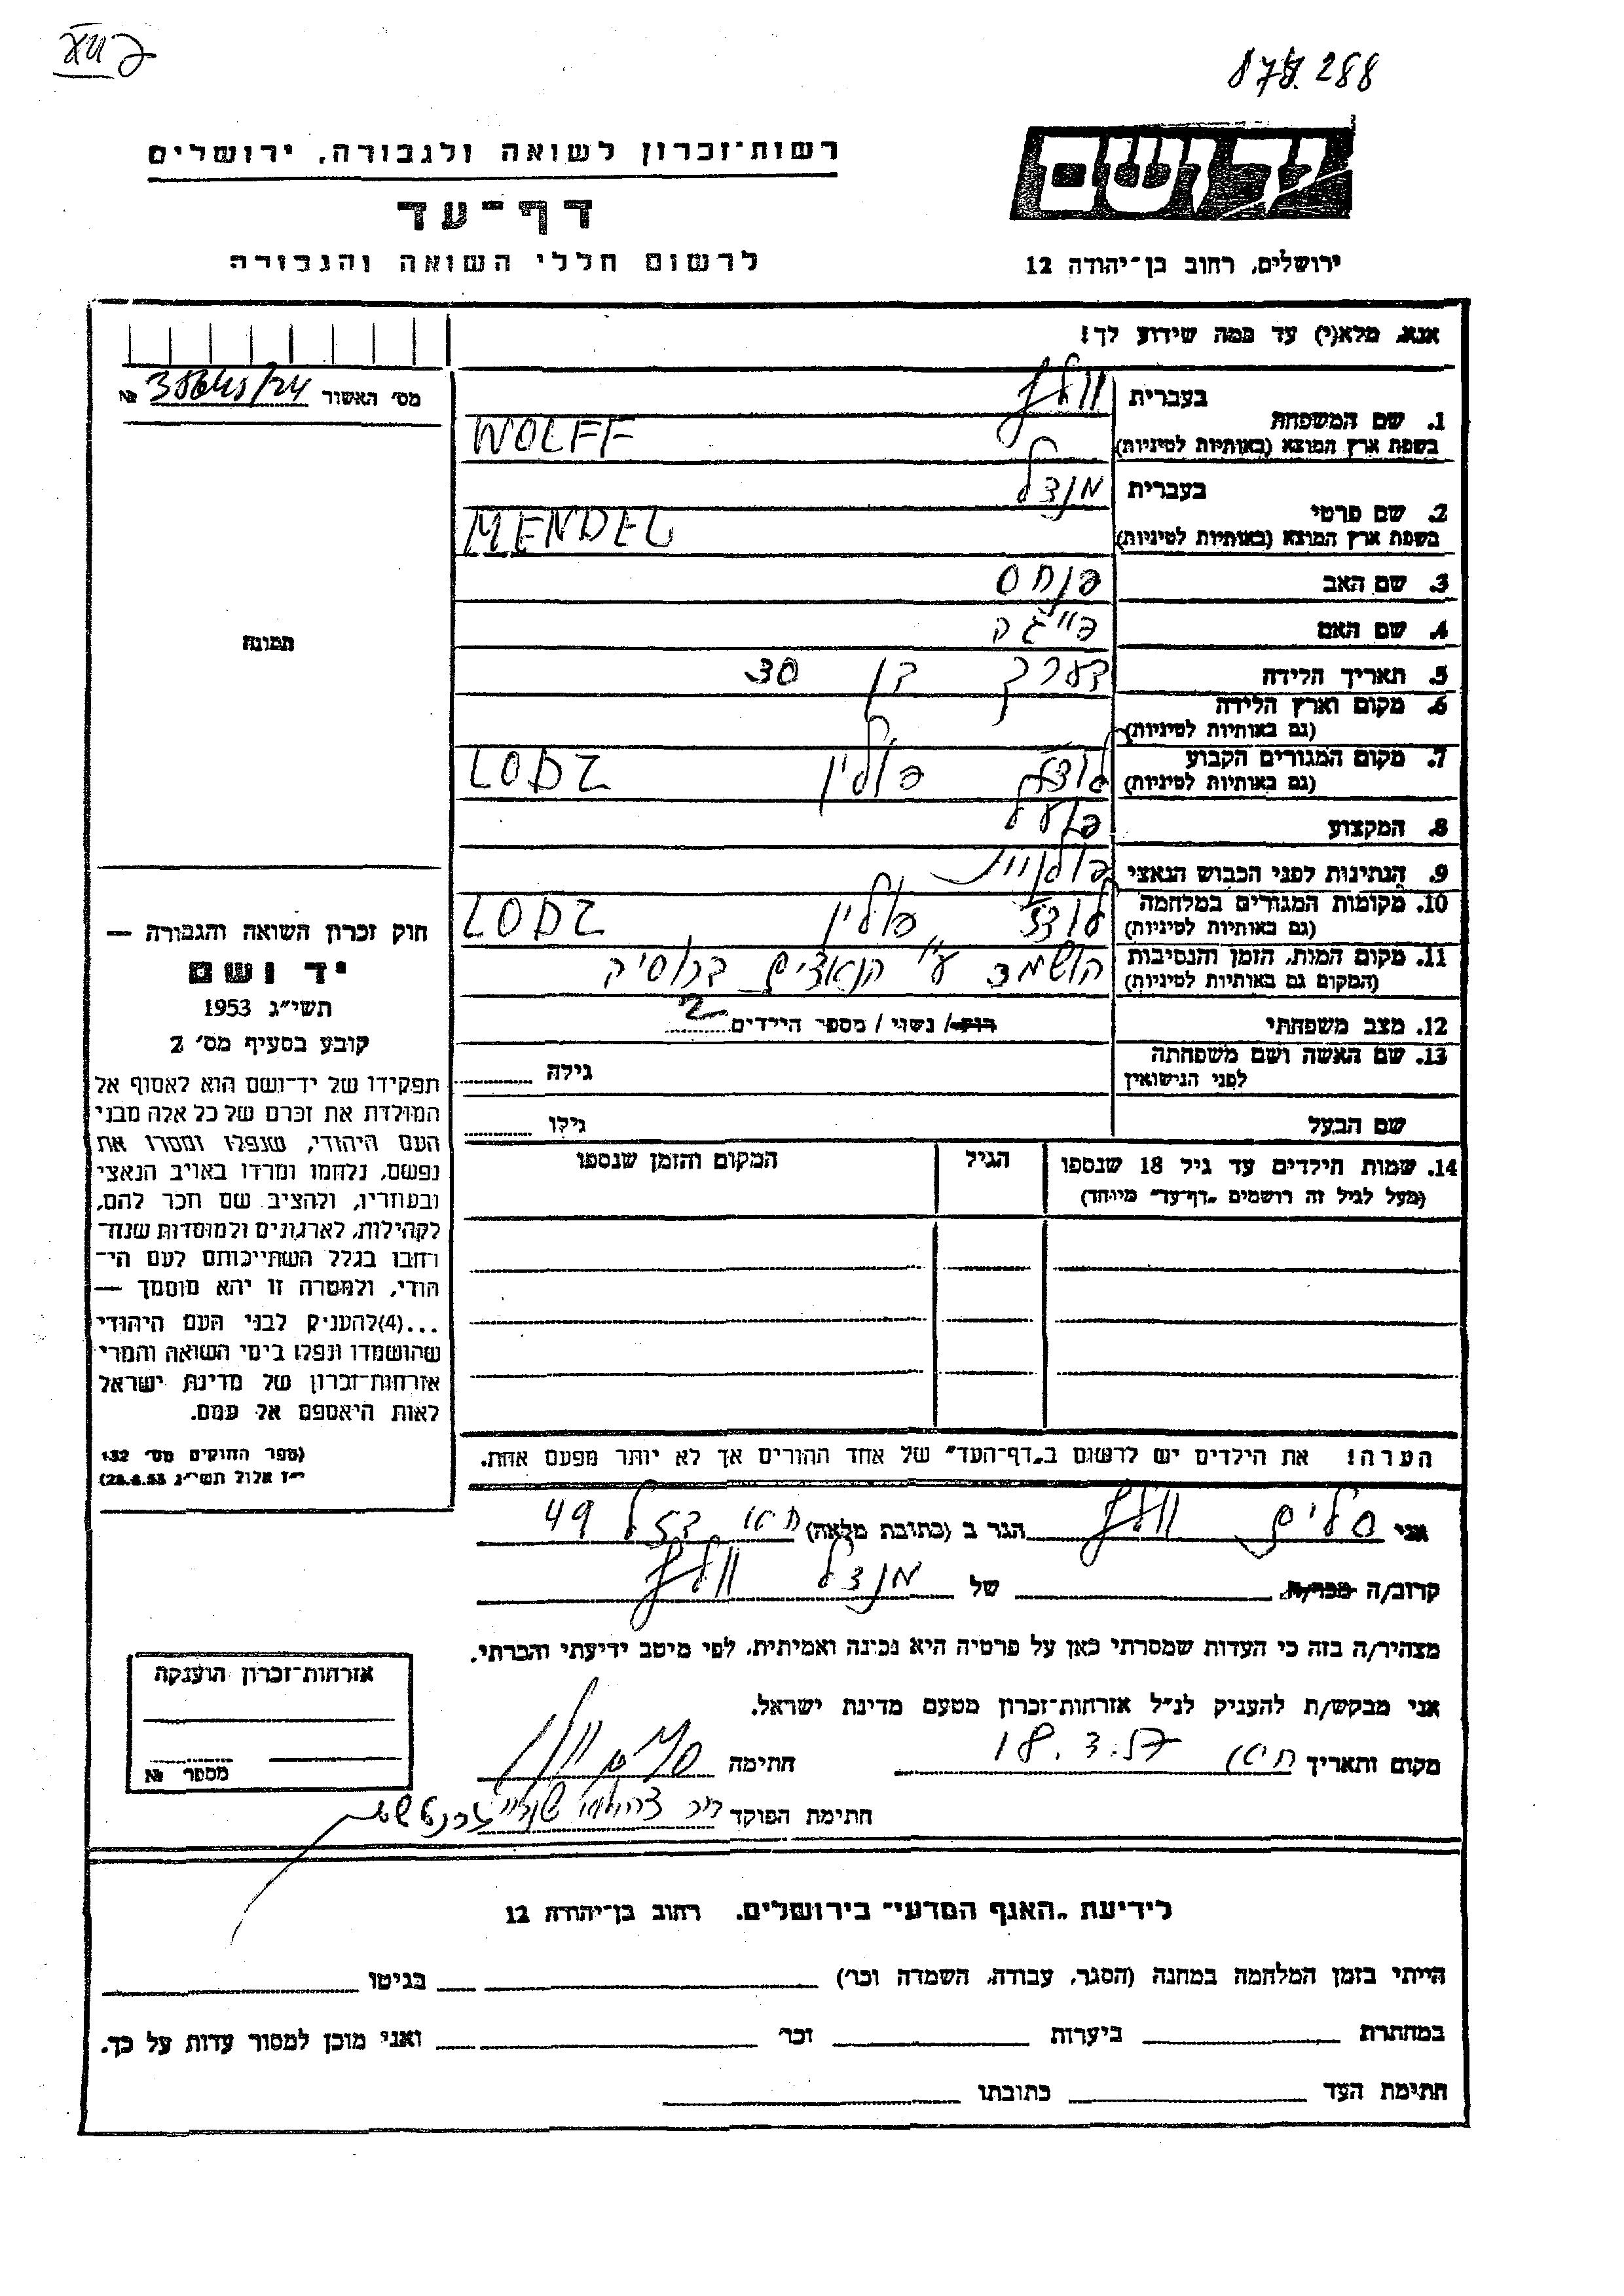 878.288
רשות־זכרון לשואה ולגבורה, ירושלים
דף־עד
לרשום חללי השואה והגבורה
יד ושם
ירושלים, רחוב בן־יהודה 12
אנא, מלא(י) עד כמה שידוע לך!
מס׳ האשור №
1. שם המשפחה
בעברית וולף
בשפת ארץ המוצא (באותיות לטיניות) WOLFF
2. שם פרטי
בעברית מנדל
בשפת ארץ המוצא (באותיות לטיניות) MENDEL
3. שם האב פנחס
4. שם האם פייגה
5. תאריך הלידה בערך בן 30
6. מקום וארץ הלידה
(גם באותיות לטיניות)
7. מקום המגורים הקבוע לודז פולין LODZ
(גם באותיות לטיניות)
8. המקצוע פועל
9. הנתינות לפני הכבוש הנאצי פולנית
10. מקומות המגורים במלחמה לודז פולין LODZ
(גם באותיות לטיניות)
11. מקום המות, הזמן והנסיבות הושמד ע״י הנאצים ברוסיה
(המקום גם באותיות לטיניות)
12. מצב משפחתי רווק / נשוי / מספר הילדים 2
13. שם האשה ושם משפחתה
לפני הנישואין
גילה
שם הבעל גילו
14. שמות הילדים עד גיל 18 שנספו
(מעל לגיל זה רושמים „דף־עד״ מיוחד)
הגיל
המקום והזמן שנספו
הערה! את הילדים יש לרשום ב„דף־העד״ של אחד ההורים אך לא יותר מפעם אחת.
תמונה
חוק זכרון השואה והגבורה —
יד ושם
תשי״ג 1953
קובע בסעיף מס׳ 2
תפקידו של יד־ושם הוא לאסוף אל
המולדת את זכרם של כל אלה מבני
העם היהודי, שנפלו ומסרו את
נפשם, נלחמו ומרדו באויב הנאצי
ובעוזריו, ולהציב שם וזכר להם,
לקהילות, לארגונים ולמוסדות שנח־
רבו בגלל השתייכותם לעם הי־
הודי, ולמטרה זו יהא מוסמך —
...(4)להעניק לבני העם היהודי
שהושמדו ונפלו בימי השואה והמרי
אזרחות־זכרון של מדינת ישראל
לאות היאספם אל עמם.
(ספר החוקים מס׳ 132
י״ז אלול תשי״ג 28.8.53)
אני סלים וולף הגר ב (כתובת מלאה) חיפו 49
קרוב/ה מכר/ה של מנדל וולף
מצהיר/ה בזה כי העדות שמסרתי כאן על פרטיה היא נכונה ואמיתית, לפי מיטב ידיעתי והכרתי.
אני מבקש/ת להעניק לנ״ל אזרחות־זכרון מטעם מדינת ישראל.
מקום ותאריך 18.3.57 חתימה
חתימת הפוקד
אזרחות־זכרון הוענקה
מספר №
לידיעת „האגף המדעי״ בירושלים, רחוב בן־יהודה 12
הייתי בזמן המלחמה במחנה (הסגר, עבודה, השמדה וכו׳) בגיטו
במחתרת ביערות וכו׳ ואני מוכן למסור עדות על כך.
חתימת העד כתובתו